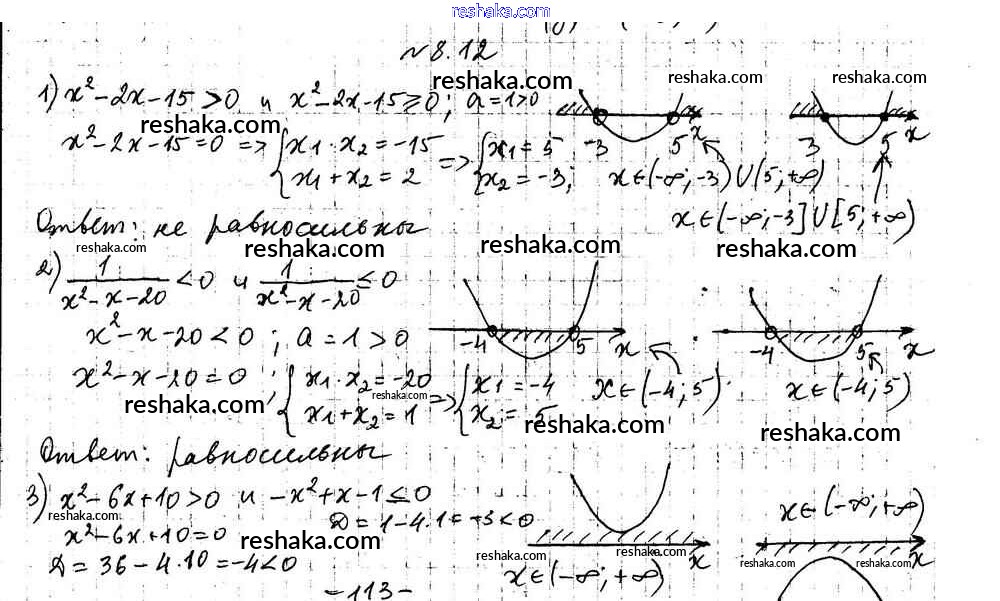 reshaka.com
№8.12
reshaka.com reshaka.com reshaka.com
1) x² - 2x - 15 > 0 и x² - 2x - 15 ≥ 0; a = 1 > 0
reshaka.com
x² - 2x - 15 = 0 => { x1 · x2 = -15 => { x1 = 5 -3 5 x 3 5 x
x1 + x2 = 2 x2 = -3; x ∈ (-∞; -3) ∪ (5; +∞)
x ∈ (-∞; -3] ∪ [5; +∞)
Ответ: не равносильны
reshaka.com reshaka.com reshaka.com reshaka.com
2) 1/(x² - x - 20) < 0 и 1/(x² - x - 20) ≤ 0
x² - x - 20 < 0; a = 1 > 0 -4 5 x -4 5 x
x² - x - 20 = 0; { x1 · x2 = -20 => { x1 = -4 x ∈ (-4; 5) x ∈ (-4; 5)
x1 + x2 = 1 x2 = 5
reshaka.com reshaka.com reshaka.com reshaka.com
Ответ: равносильны
3) x² - 6x + 10 > 0 и -x² + x - 1 ≤ 0
x ∈ (-∞; +∞)
reshaka.com
D = 1 - 4 · 1 = -3 < 0
x² - 6x + 10 = 0
reshaka.com reshaka.com reshaka.com reshaka.com reshaka.com
D = 36 - 4 · 10 = -4 < 0
x ∈ (-∞; +∞) x x
- 113 -